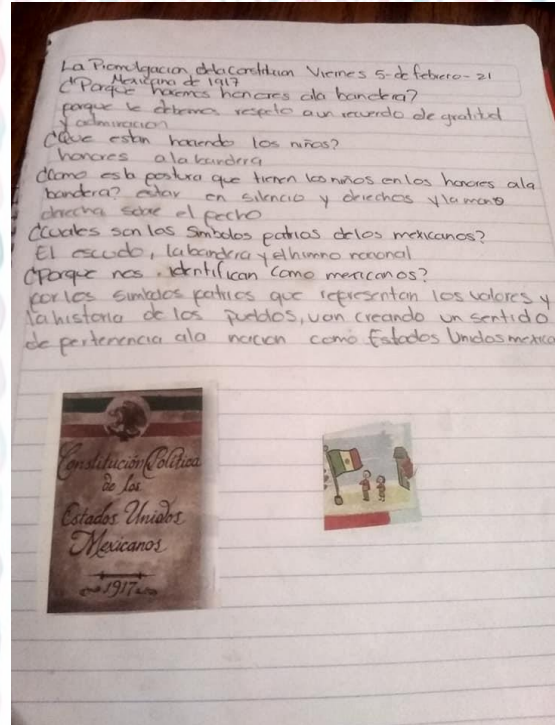 La Promulgacion, dela constitucion Viernes 5-de febrero-21
Mexicana de 1917
¿Porque hacemos honores ala bandera?
porque le debemos respeto aun recuerdo de gratitud
y admiracion
¿Que estan haciendo los niños?
honores a la bandera
¿Como es la postura que tienen los niños en los honores ala
bandera? estar en silencio y derechos y la mano
derecha sobre el pecho
¿Cuales son los Simbolos patrios delos mexicanos?
El escudo, la bandera y el himno nacional
¿Porque nos identifican como mexicanos?
por los simbolos patrios que representan los valores y
la historia de los pueblos, van creando un sentido
de pertenencia ala nacion como Estados Unidos mexica
Constitución Política
de los
Estados Unidos
Mexicanos
1917